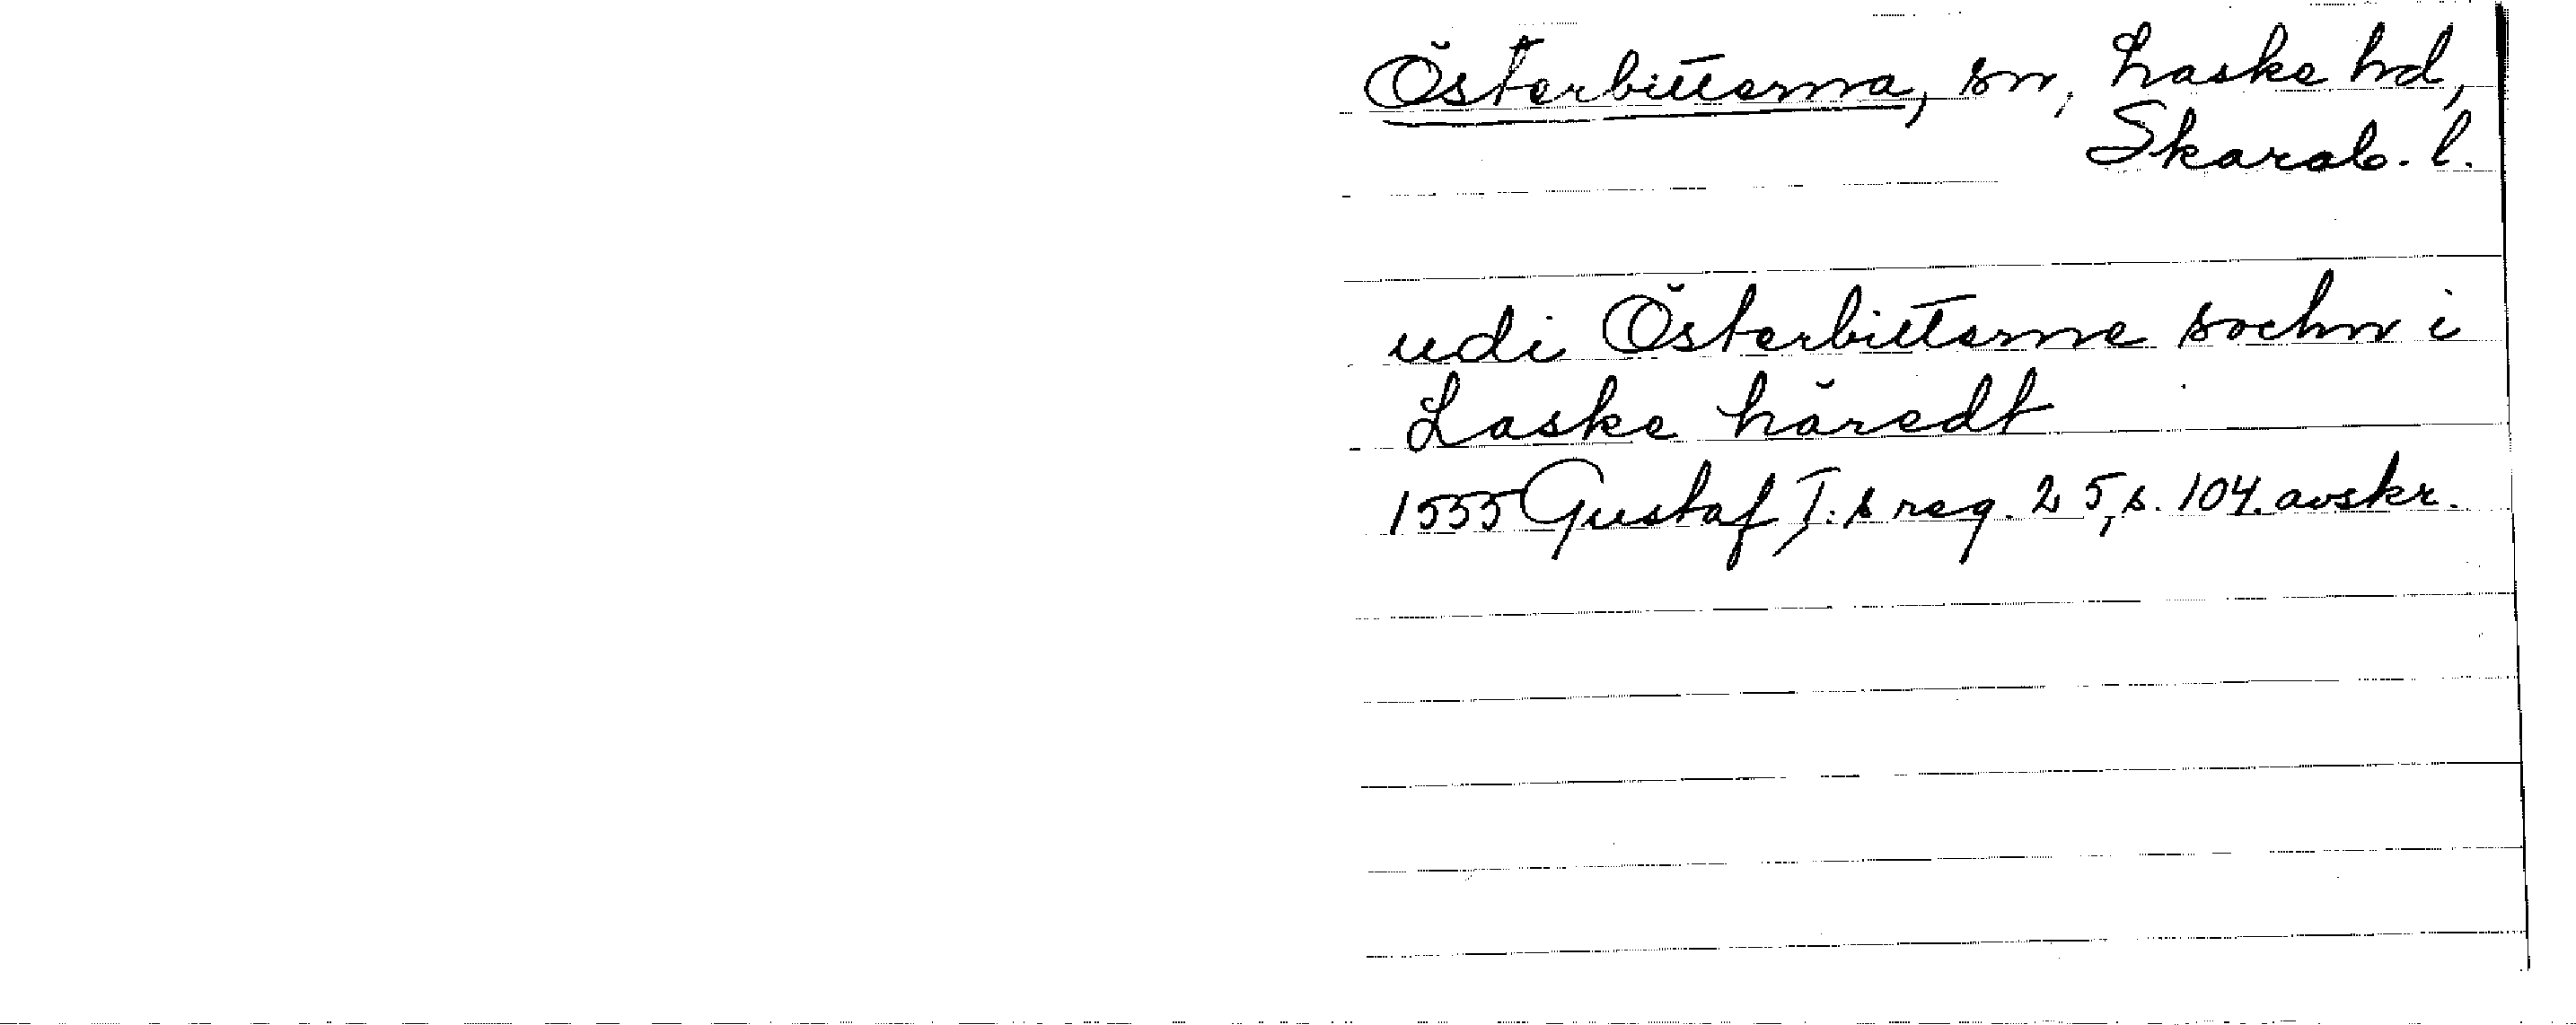 Österbitterna, sn, Laske hd,
Skarab. l.
udi Österbitterne sochn i
Laske häredt
1555 Gustaf I:s reg. 25, s. 104. avskr.